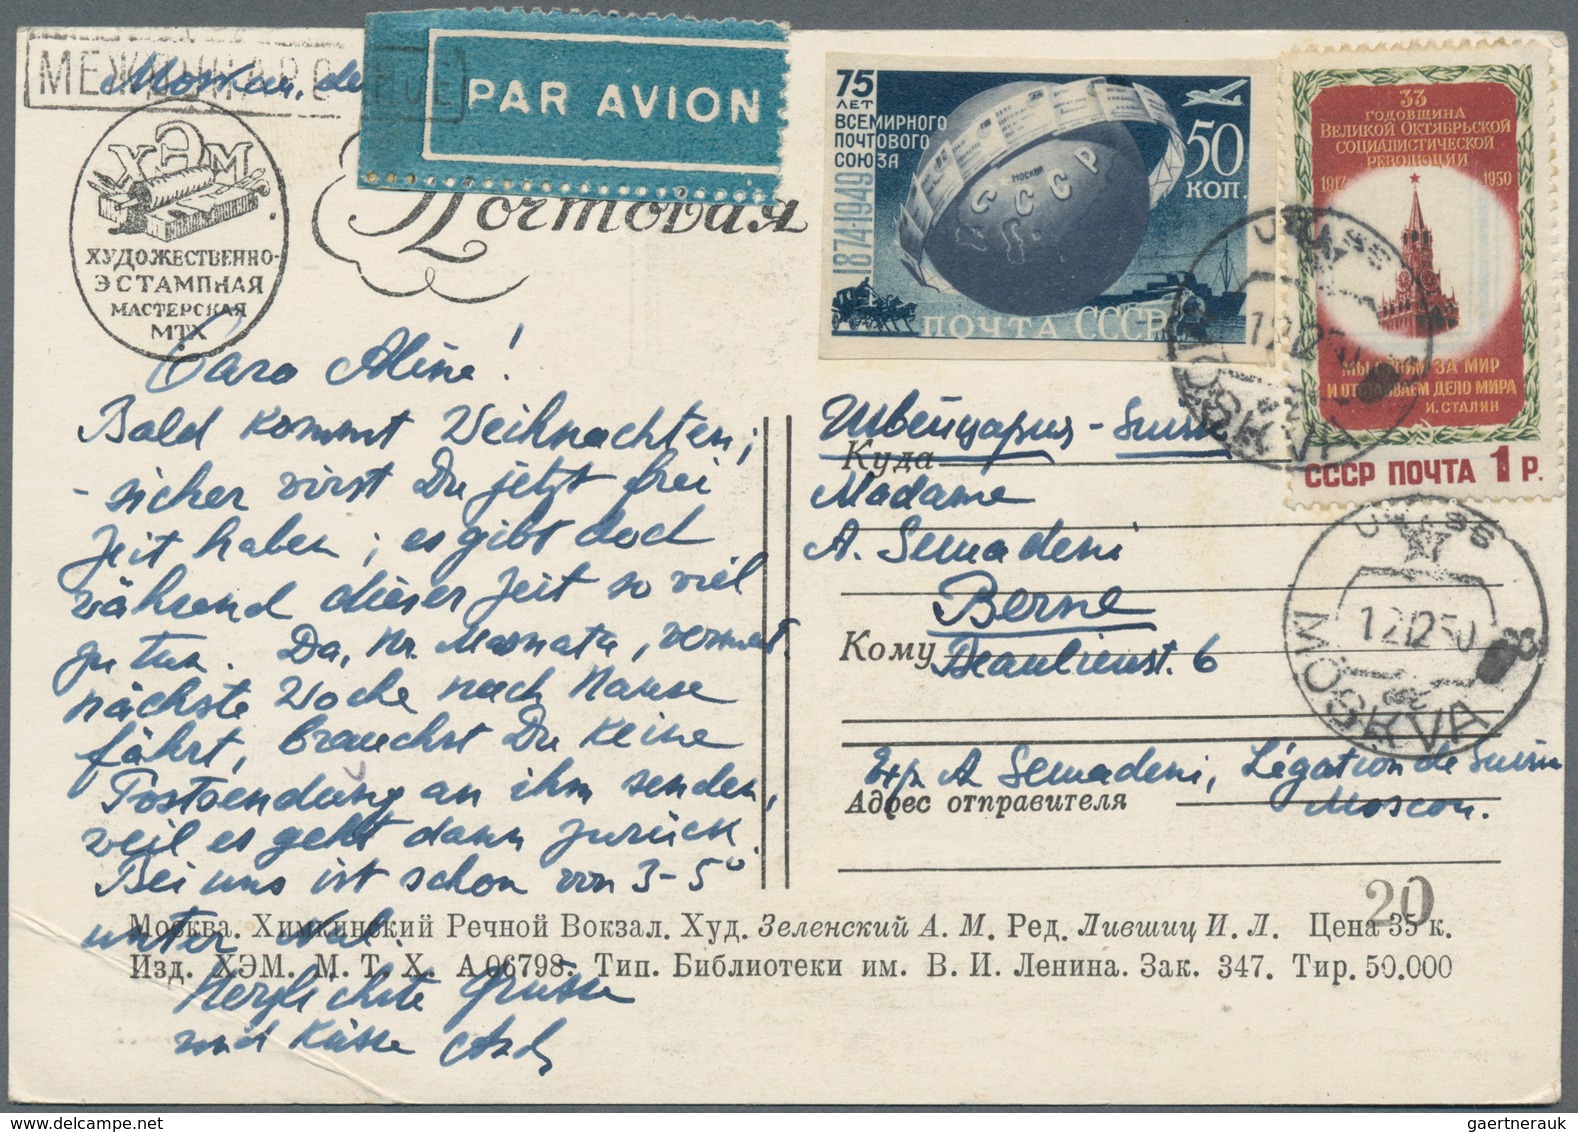 МЕЖДУНАРОДНОЕ
Moskau, de
PAR AVION
Почтовая
ХЭМ
ХУДОЖЕСТВЕННО-
ЭСТАМПНАЯ
МАСТЕРСКАЯ
МТХ
75
ЛЕТ
ВСЕМИРНОГО
ПОЧТОВОГО
СОЮЗА
1874-1949
МОСКВА
СССР
50
КОП.
ПОЧТА СССР
33
ГОДОВЩИНА
ВЕЛИКОЙ ОКТЯБРЬСКОЙ
СОЦИАЛИСТИЧЕСКОЙ
РЕВОЛЮЦИИ
1917 1950
МЫ СТОИМ ЗА МИР
И ОТСТАИВАЕМ ДЕЛО МИРА
И. СТАЛИН
СССР ПОЧТА 1 Р.
Cara Aline!
Bald kommt Weihnachten;
- sicher wirst Du jetzt frei
Zeit haben; es gibt doch
während dieser Zeit so viel
zu tun. Da, Hr. vermutl.
nächste Woche nach Hause
fährt, brauchst Du keine
Postsendung an ihm senden,
weil es geht dann zurück.
Bei uns ist schon von 3-5°
unter Nul.
Herzlichste Grüsse
und Küsse
Швейцария - Suisse
Куда
Madame
A. Semadeni
Berne
Кому Beaulieust. 6
Exp. A Semadeni, Légation de Suisse
Адрес отправителя Moscou.
12 12 50
MOSKVA
12 12 50
MOSKVA
20
Москва. Химкинский Речной Вокзал. Худ. Зеленский А. М. Ред. Лившиц И. Л. Цена 35 к.
Изд. ХЭМ. М. Т. Х. А 06798. Тип. Библиотеки им. В. И. Ленина. Зак. 347. Тир. 50.000
gaertnerauk